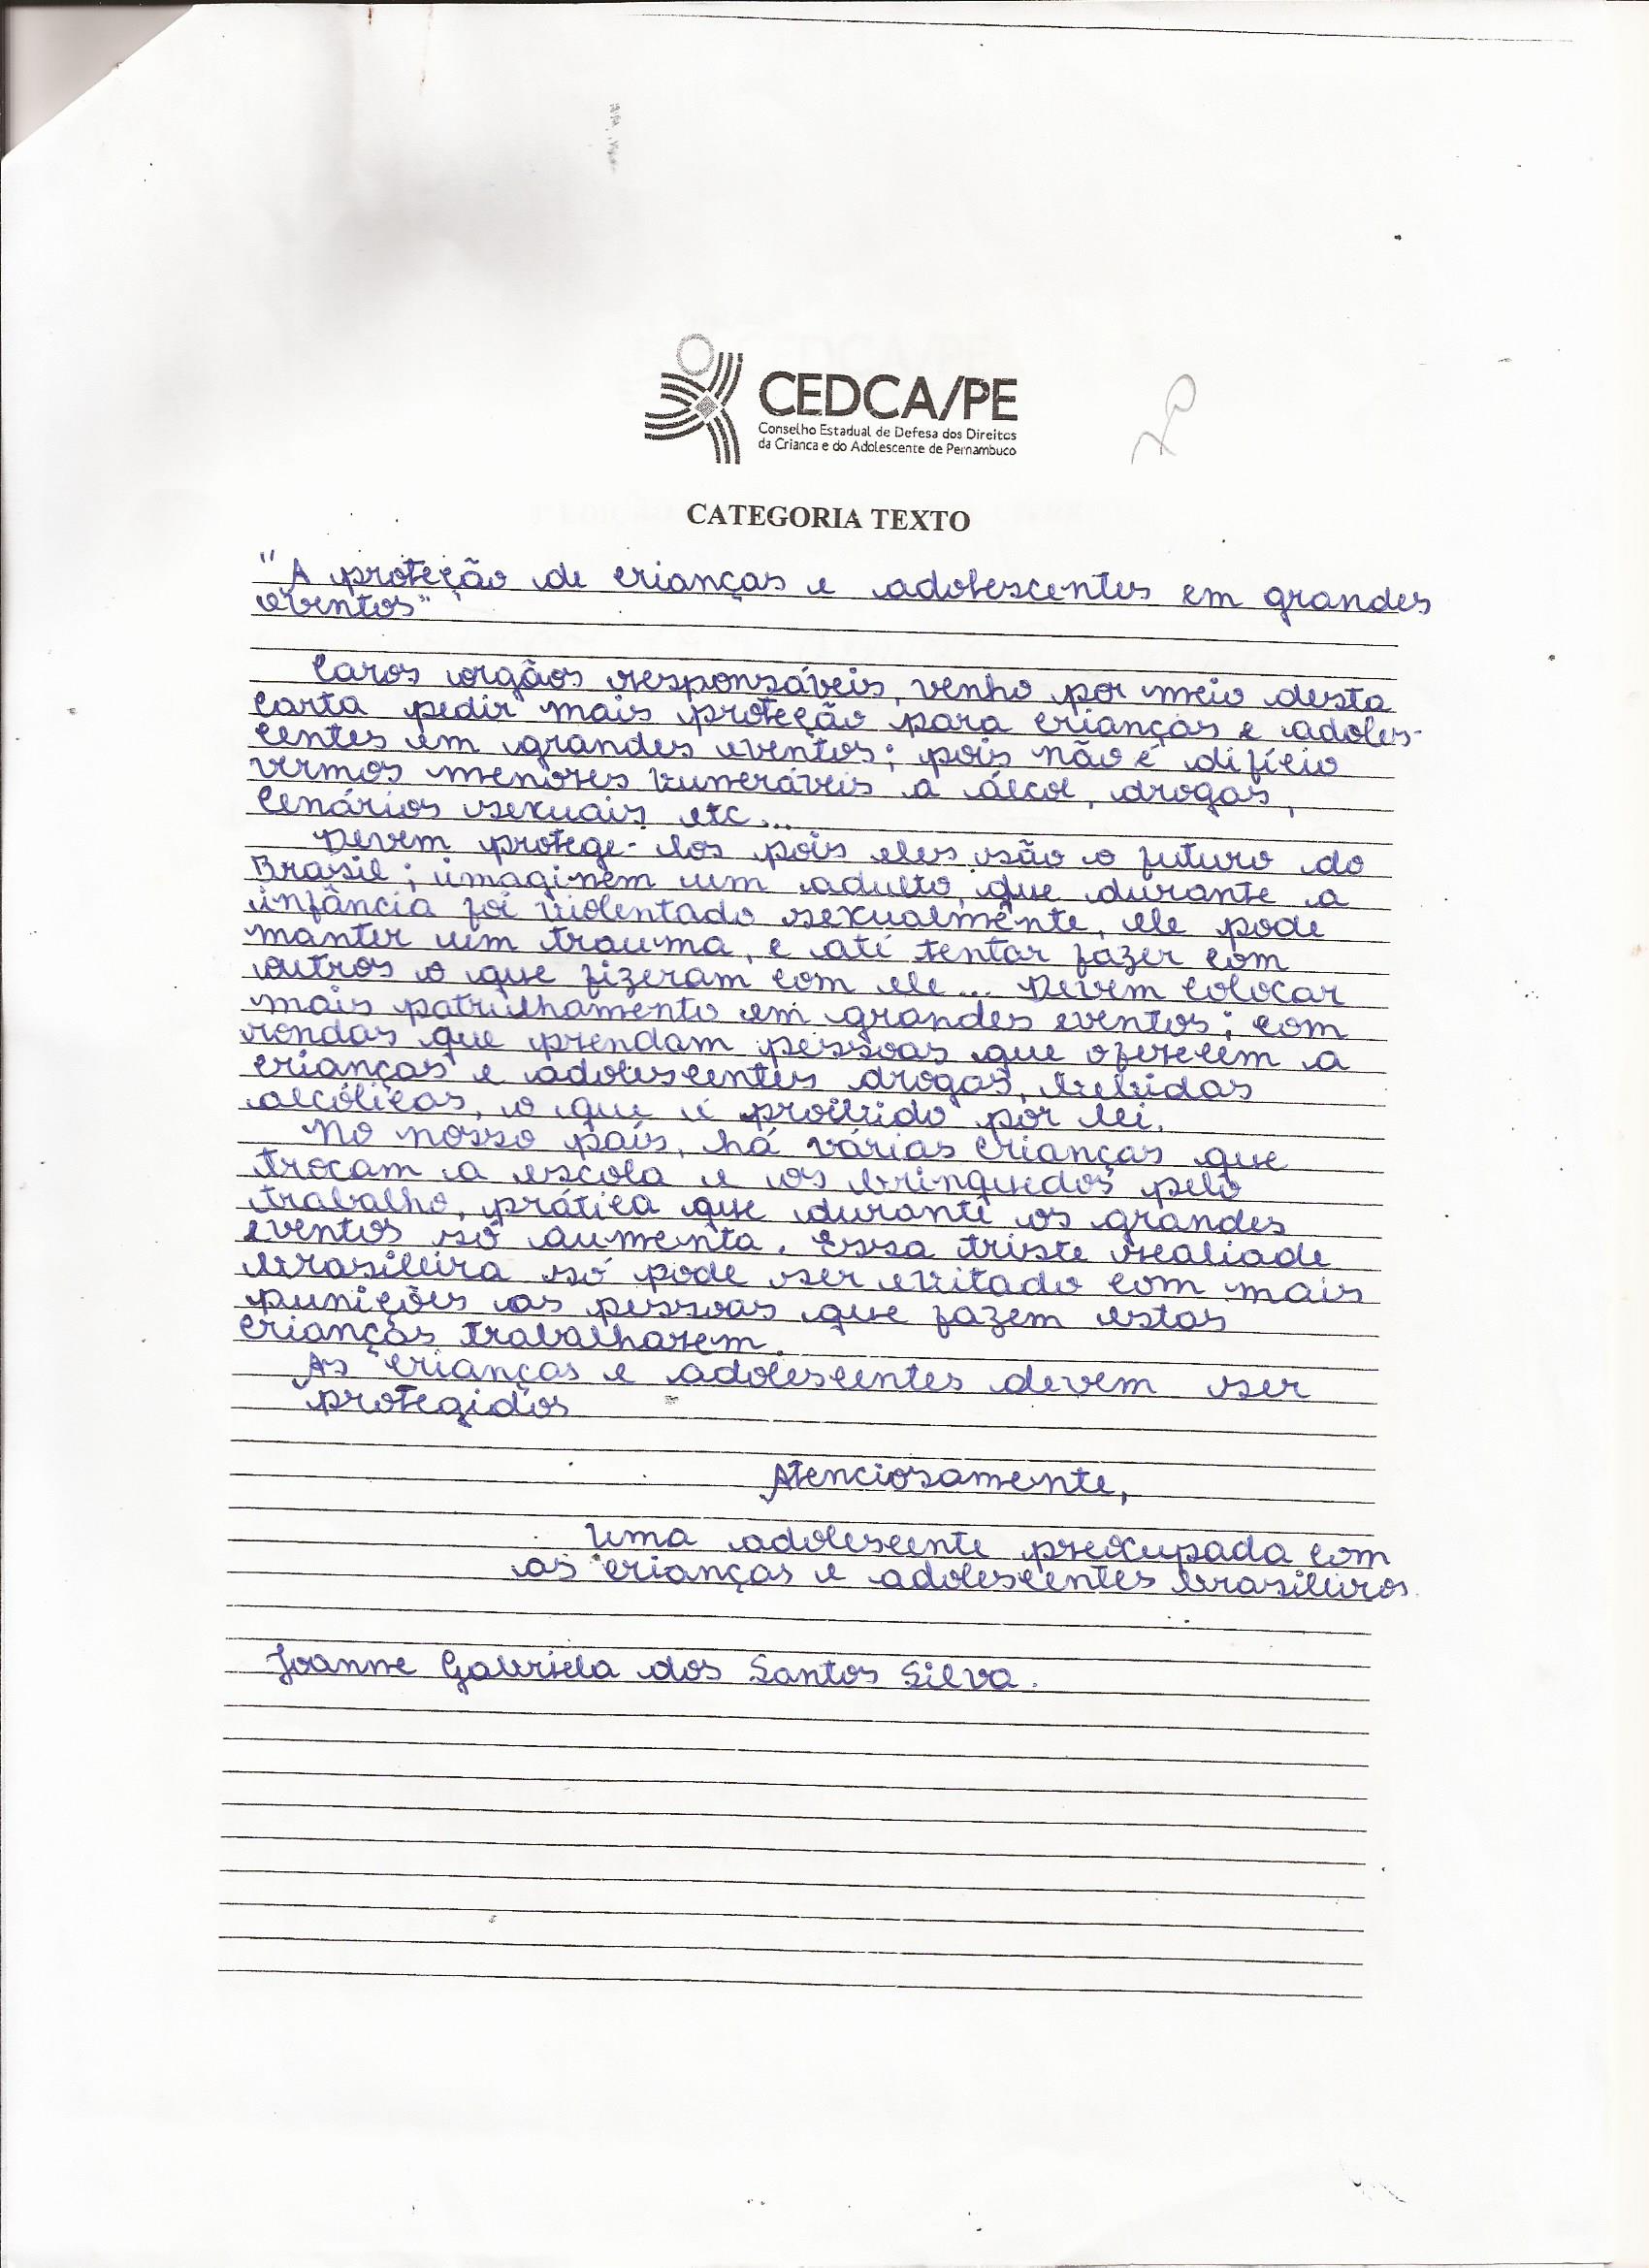 CEDCA/PE
Conselho Estadual de Defesa dos Direitos
da Criança e do Adolescente de Pernambuco
CATEGORIA TEXTO
"A proteção de crianças e adolescentes em grandes
eventos"
Caros orgãos responsáveis, venho por meio desta
carta pedir mais proteção para crianças e adoles-
centes em grandes eventos; pois não é difício
vermos menores vuneráveis a álcol, drogas,
cenários sexuais etc...
Devem protege-los pois eles são o futuro do
Brasil; imaginem um adulto, que durante a
infância foi violentado sexualmente, ele pode
manter um trauma, e até tentar fazer com
outros o que fizeram com ele... Devem colocar
mais patrulhamento em grandes eventos; com
rondas que prendam pessoas que oferecem a
crianças e adolescentes drogas, bebidas
alcólicas, o que é proibido por lei.
No nosso país, há várias crianças que
trocam a escola e os brinquedos pelo
trabalho, prática que durante os grandes
eventos só aumenta. Essa triste realiade
brasileira só pode ser evitado com mais
punições as pessoas que fazem estas
crianças trabalharem.
As crianças e adolescentes devem ser
protegidos
Atenciosamente,
Uma adolescente preocupada com
as crianças e adolescentes brasileiros.
Joanne Gabriela dos Santos Silva.